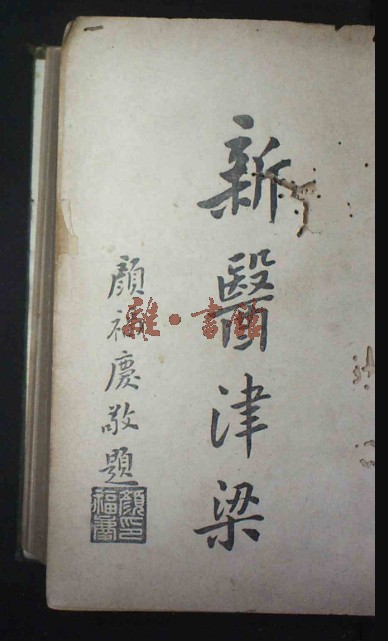 新醫津梁
顏福慶敬題
顏福慶印
雜·書館